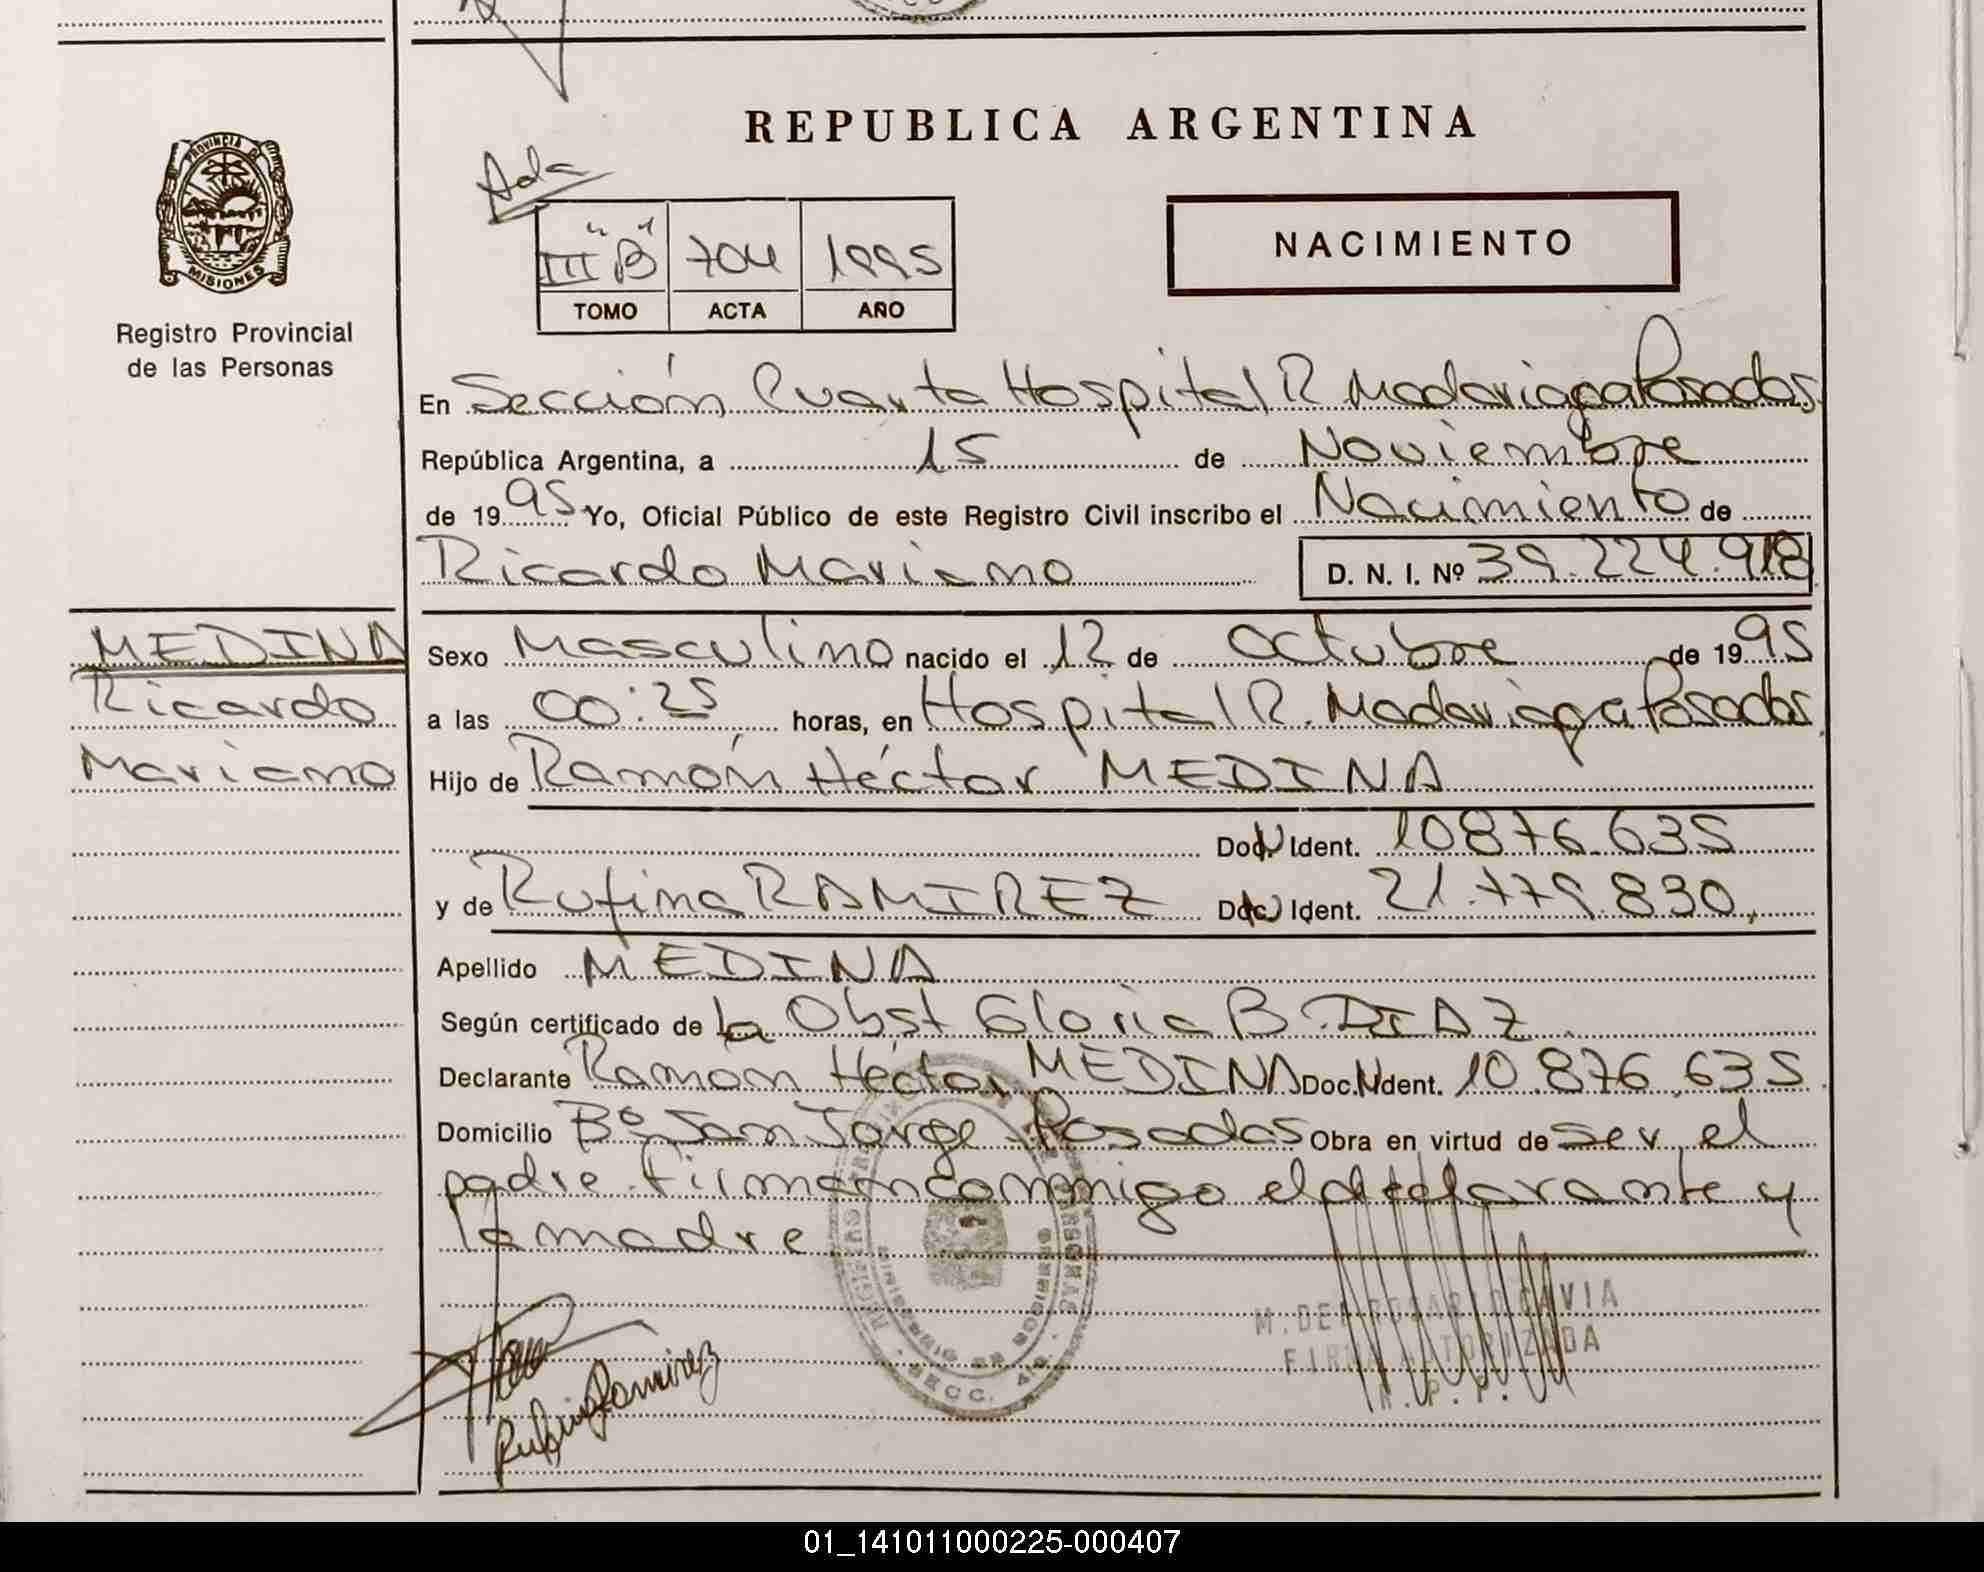 REPUBLICA ARGENTINA
PROVINCIA DE
MISIONES
Registro Provincial
de las Personas
Ada
III "B" 704 1995
TOMO ACTA AÑO
NACIMIENTO
En Sección Cuarta Hospital R. Madariaga Posadas
República Argentina, a 15 de Noviembre
de 1995 Yo, Oficial Público de este Registro Civil inscribo el Nacimiento de
Ricardo Mariano D. N. I. Nº 39.224.918
MEDINA
Ricardo
Mariano
Sexo Masculino nacido el 12 de Octubre de 1995
a las 00:25 horas, en Hospital R. Madariaga Posadas
Hijo de Ramón Héctor MEDINA
Doc. Ident. 10876.635
y de Rufina RAMIREZ Doc. Ident. 21.779.830,
Apellido MEDINA
Según certificado de la Obst Gloria B. DIAZ
Declarante Ramón Héctor MEDINA Doc. Ident. 10.876.635
Domicilio Bº San Jorge Posadas Obra en virtud de ser el
padre. Firman conmigo el declarante y
la madre
MINISTERIO DE GOBIERNO
SECC. 4ta.
M. DEL ROSARIO GAVIA
FIRMA AUTORIZADA
R. P. P.
Rufina Ramirez
01_141011000225-000407